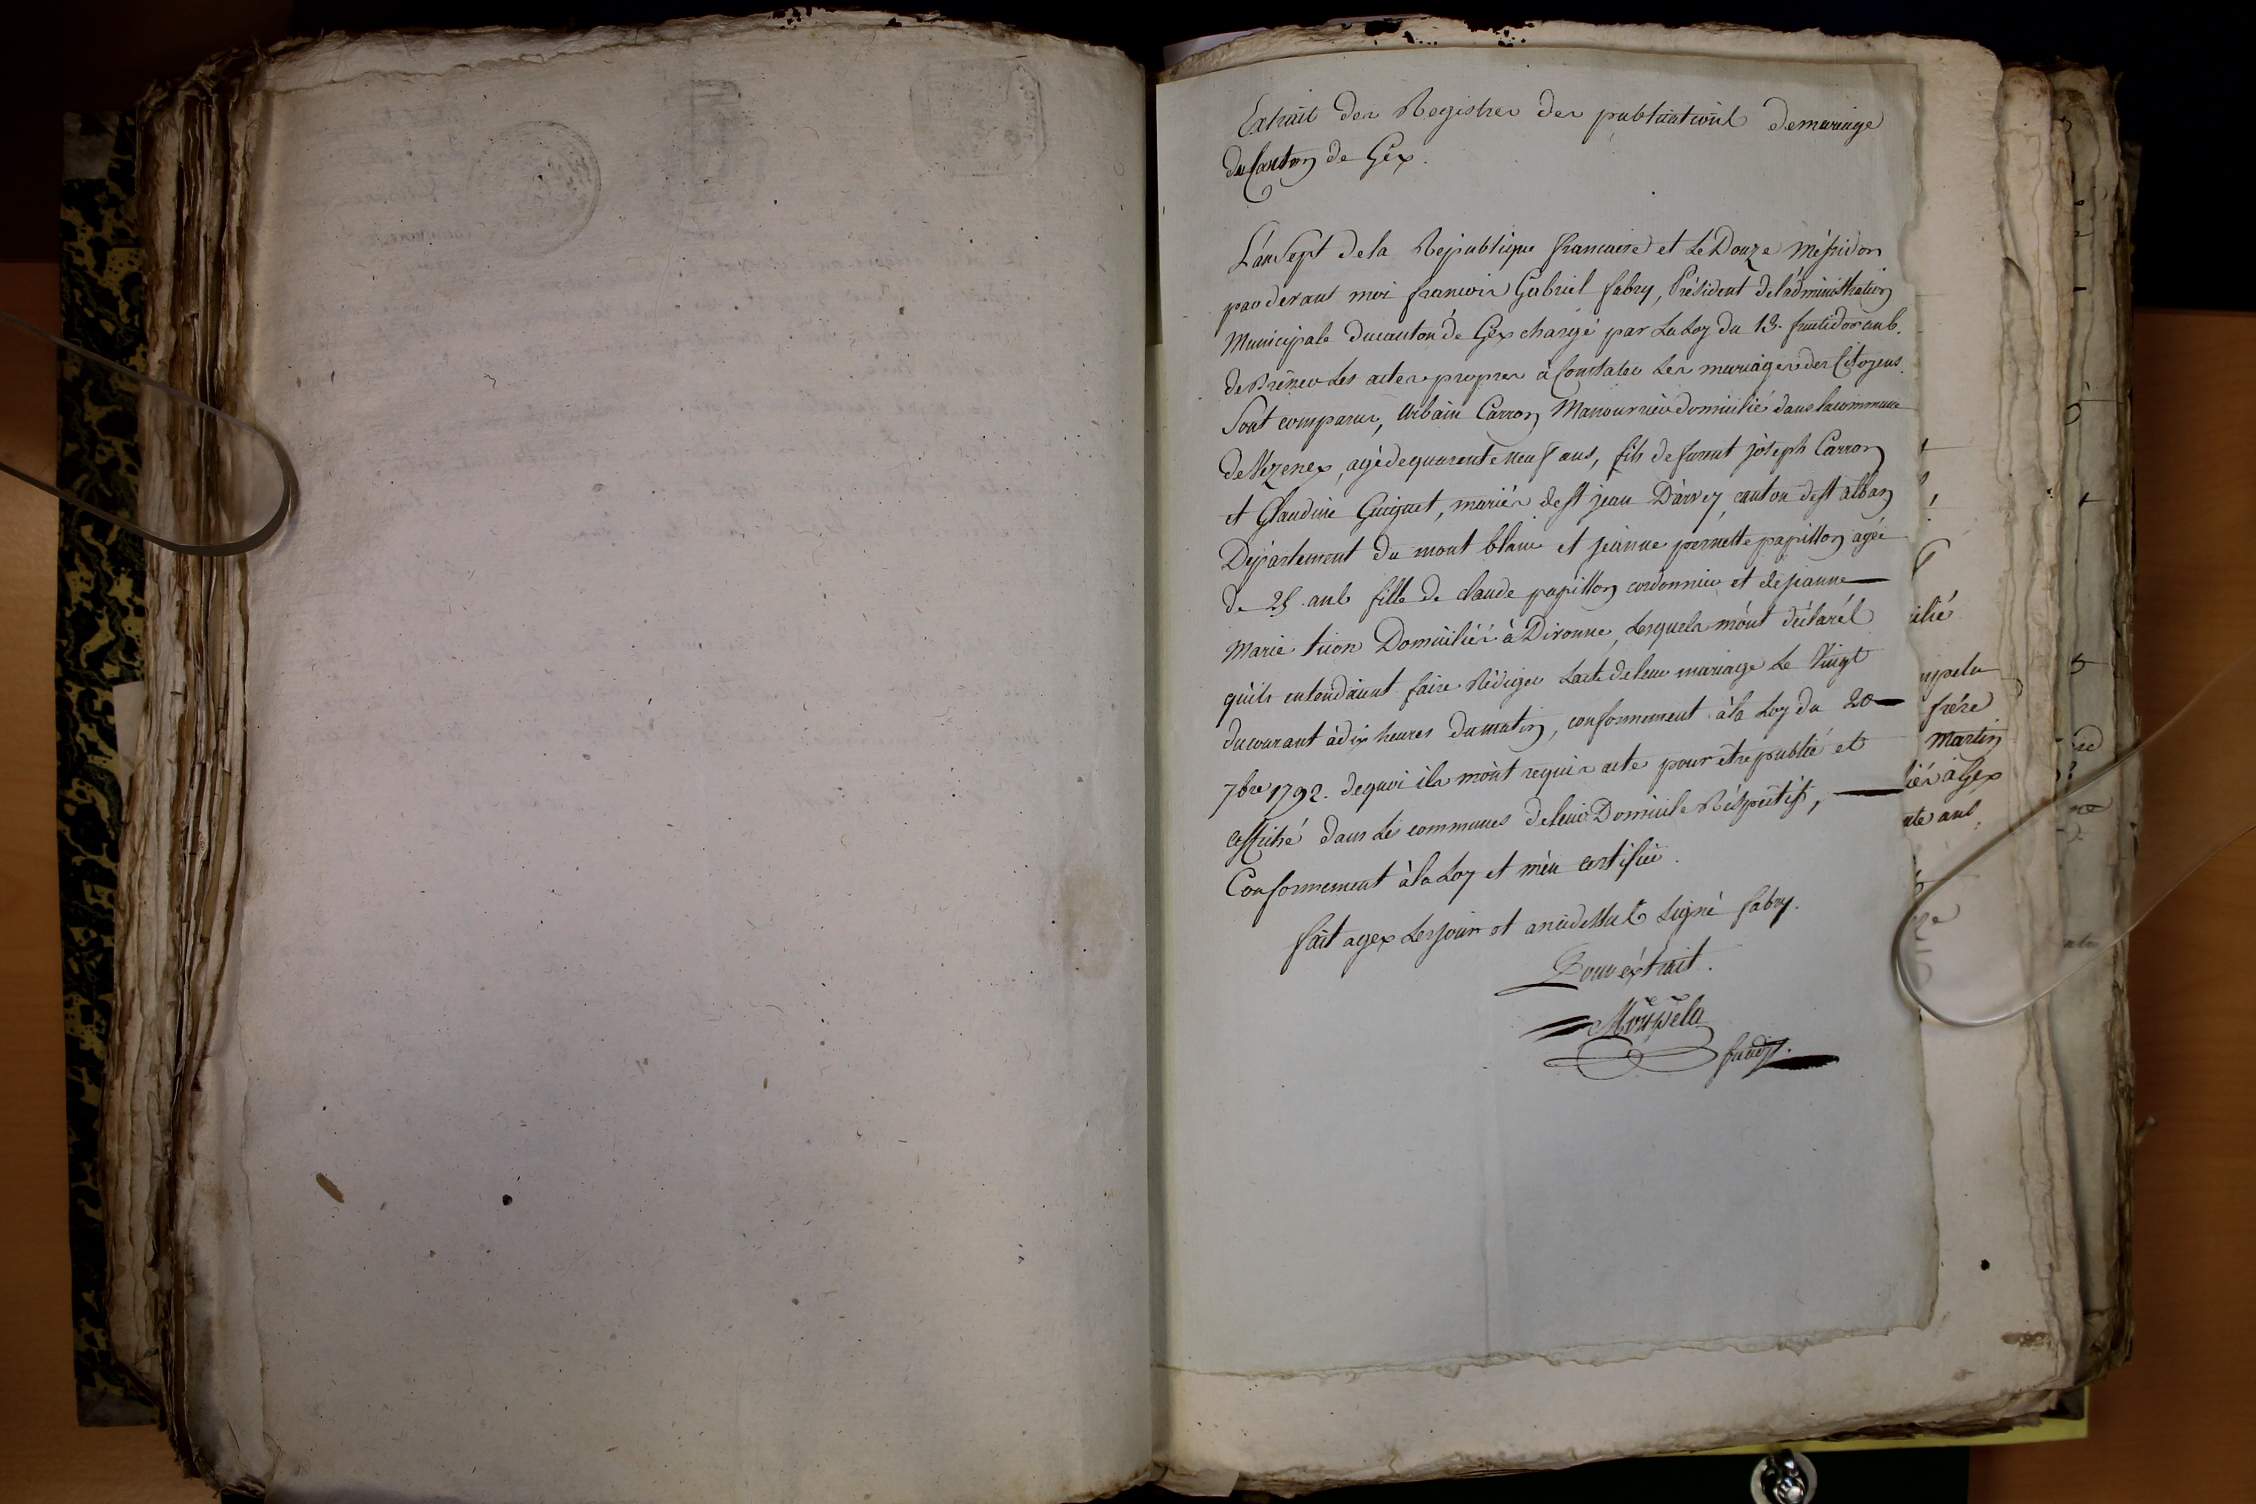 Extrait des Registres des publications demariage
du Canton de Gex.
L'an Sept dela République francaise et Le Douze Messidor
pardevant moi francois Gabriel fabry, Président del'administration
Municipale ducanton de Gex chargé par La Loy du 13. fructidor an 6.
de Rédiger Les actes propres à Constater Les mariages des Citoyens.
Sont comparus, urbain Carron Manouvrier domicilié dans lacommune
de Vezenex, agé dequarente neuf ans, fils de funnt joseph Carron
et Glaudine Guiguet, mariés de st jean D'arvey canton de st alban
Département du mont blanc et jeanne pernette papillon agée
de 25 ans fille de claude papillon cordonnier et dejeanne
Marie tison Domiciliés à Divonne, Lesquels m'ont déclarés
qu'ils entendaient faire Rédiger Lacte deleur mariage Le Vingt
ducourant à dix heures dumatin, conformement à la Loy du 20
7bre 1792. dequoi ils m'ont requis acte pour etre publié et
afiché dans Les communes deleur Domicile Réspectifs,
Conformement à la Loy et m'en certifier.
fait agex Les jour et an cidessus signé fabry.
Pour éxtrait.
ilié
frére
Martin
iés à Gex
nte ans.